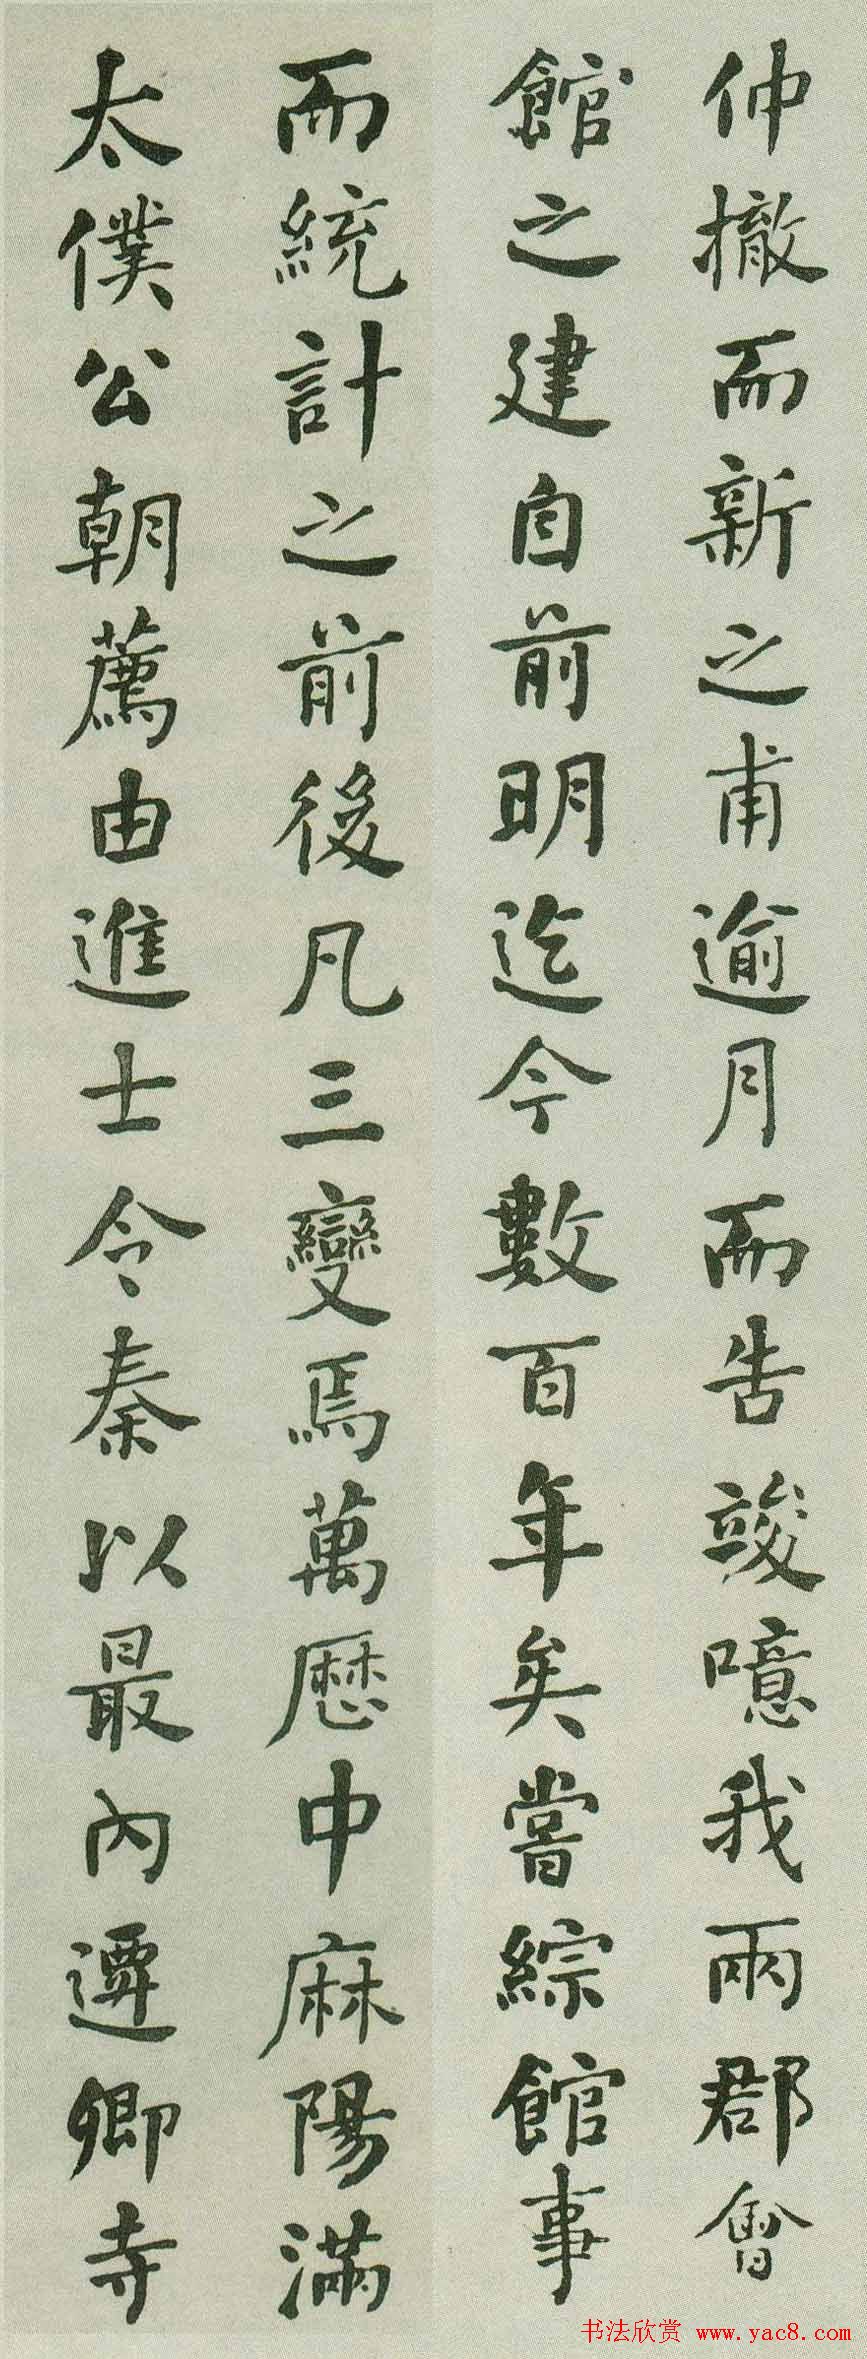 仲撤而新之甫逾月而告竣噫我兩郡會
館之建自前明迄今數百年矣嘗綜館事
而統計之前後凡三變焉萬歷中麻陽滿
太僕公朝薦由進士令秦以最內遷卿寺
书法欣赏 www.yac8.com